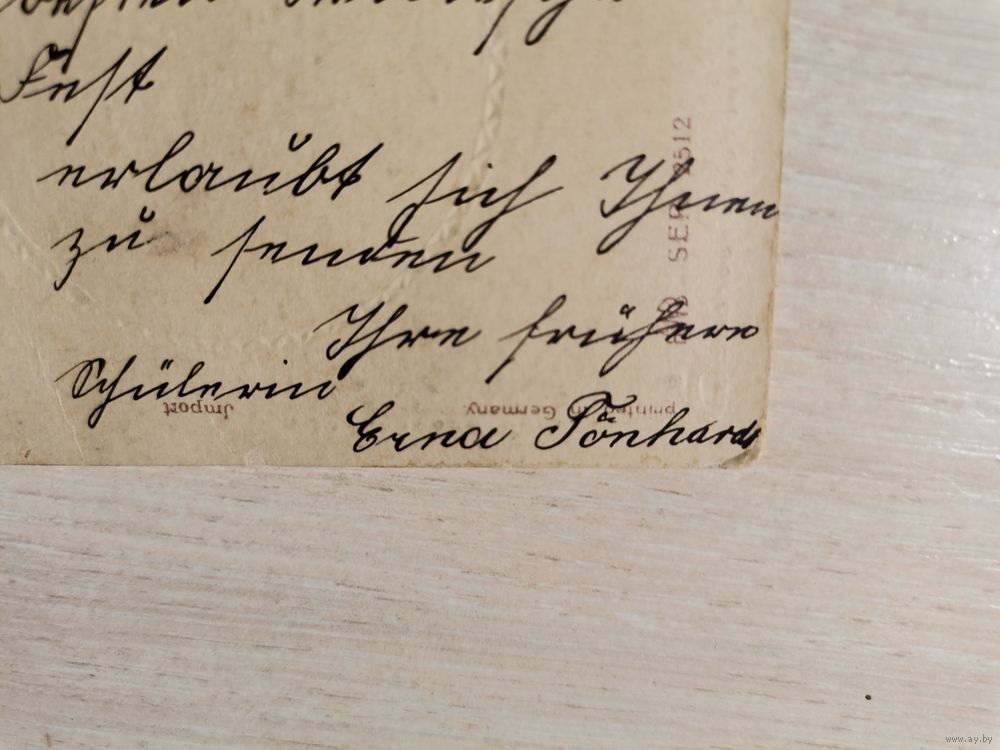 Fest
erlaubt sich Ihnen
zu senden
Ihre frühere
Schülerin
Erna Tönhardt
Import
printed in Germany
SER 2512
www.ay.by